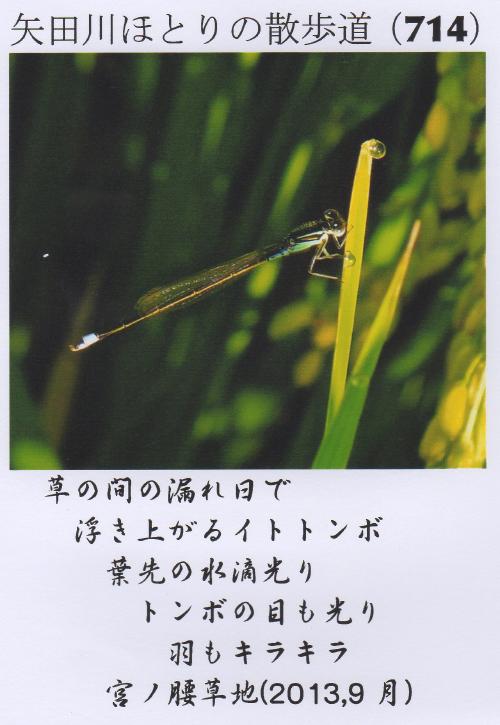 矢田川ほとりの散歩道（714）
草の間の漏れ日で
浮き上がるイトトンボ
葉先の水滴光り
トンボの目も光り
羽もキラキラ
宮ノ腰草地(2013,9 月)